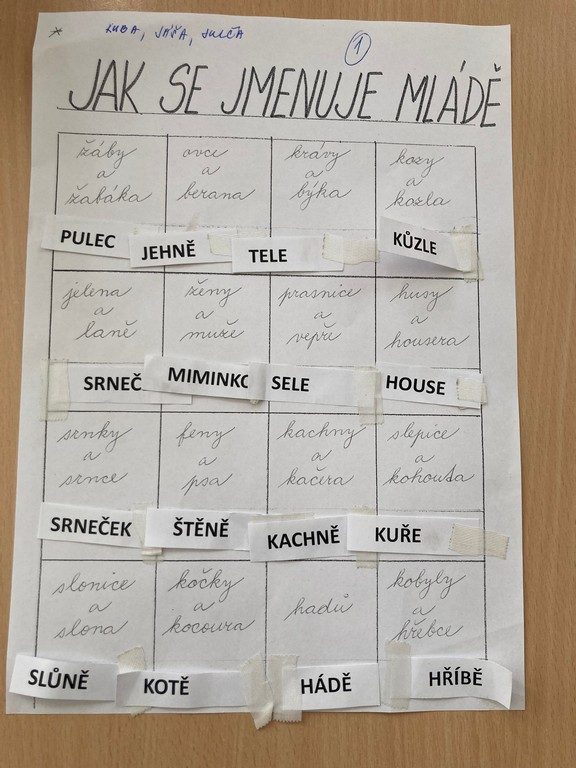 * KUBA, JÁŠA, JULČA
1
JAK SE JMENUJE MLÁDĚ
žáby a žabáka
ovce a berana
krávy a býka
kozy a kozla
PULEC
JEHNĚ
TELE
KŮZLE
jelena a laně
ženy a muže
prasnice a vepře
husy a housera
SRNEČ
MIMINKO
SELE
HOUSE
srnky a srnce
feny a psa
kachny a kačera
slepice a kohouta
SRNEČEK
ŠTĚNĚ
KACHNĚ
KUŘE
slonice a slona
kočky a kocoura
hadů
kobyly a hřebce
SLŮNĚ
KOTĚ
HÁDĚ
HŘÍBĚ